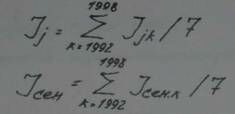 J_j = \sum_{k=1992}^{1998} J_{jk} / 7
J_{сен} = \sum_{k=1992}^{1998} J_{сен.к} / 7